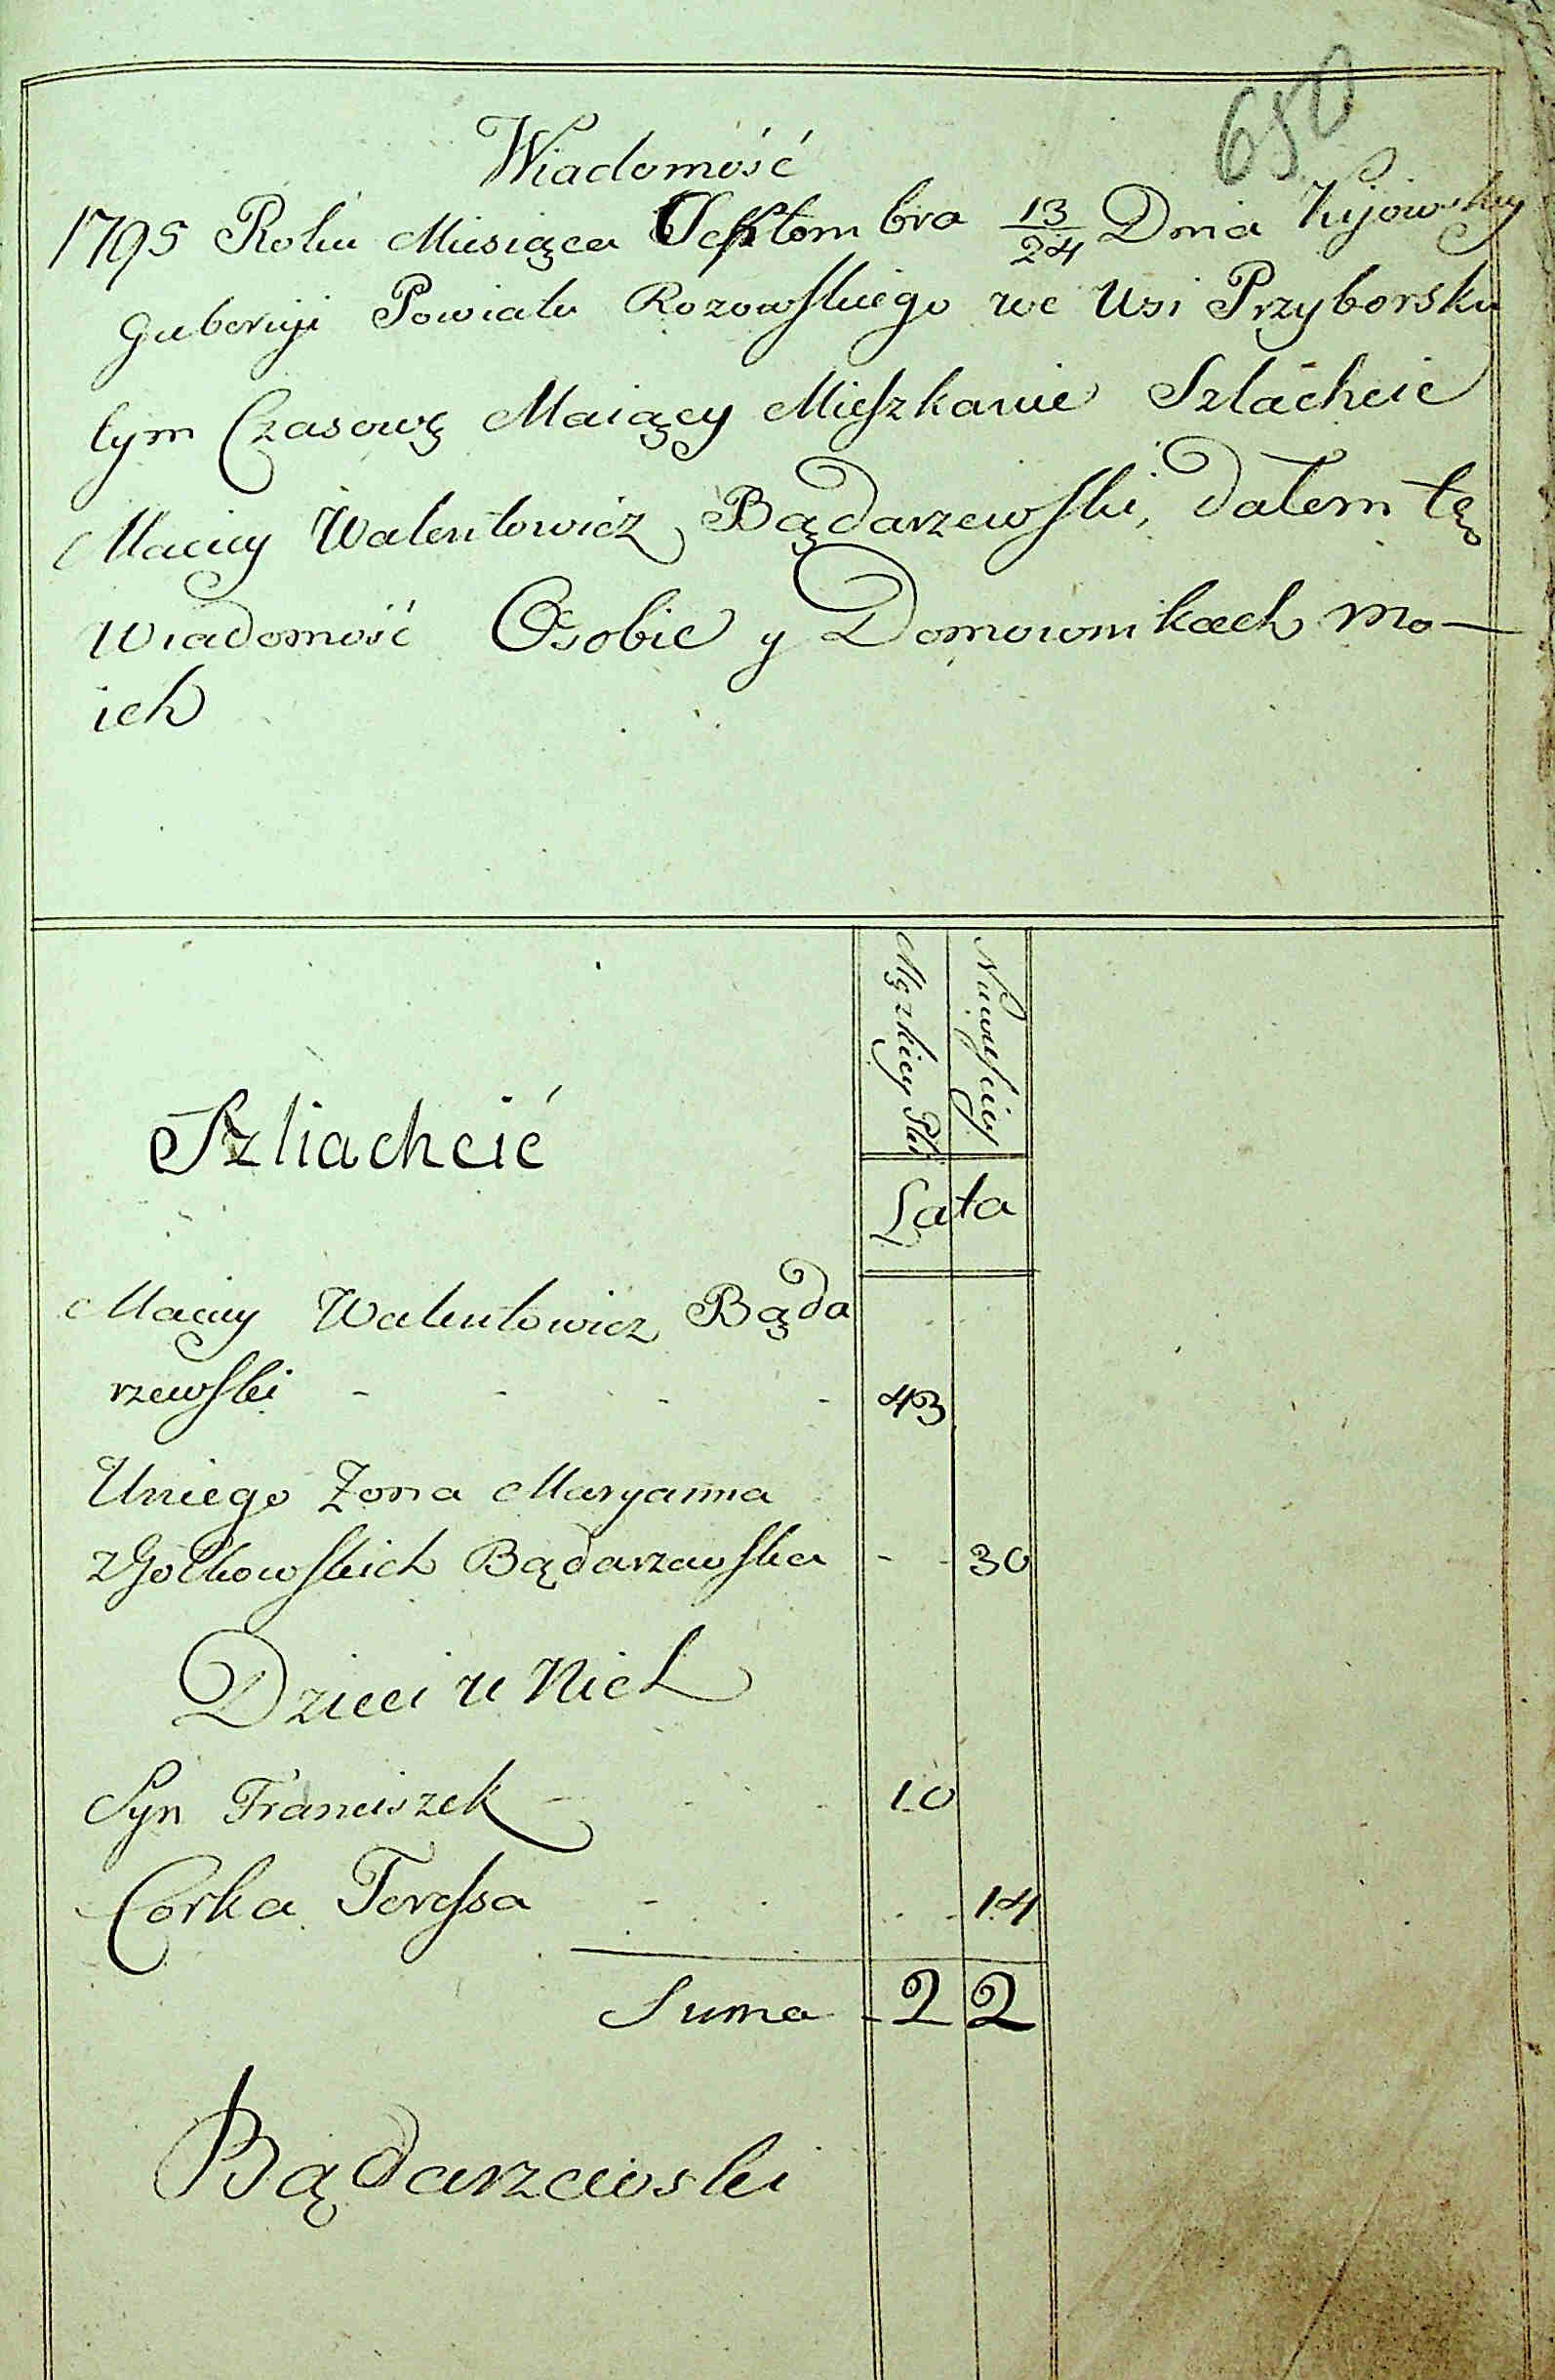 650
Wiadomość
1795 Roku Miesiąca Septembra 13/24 Dnia Kijowskiy
Gubernji Powiatu Rozowskiego we Wsi Przyborsku
tym Czasowę Maiący Mieszkanie Szlachcic
Maciey Walentowicz Bądarzewski, dałem tę
wiadomość Osobie y Domownikach mo-
ich
Męzkiey Płci
Niewiesciey
Szliachcić
Lata
Maciey Walentowicz Bąda
rzewski - - - - 43
Uniego Zona Maryanna
z Gołkowskich Bądarzewska - - 30
Dzieci u Nich
Syn Franciszek - - - 10
Corka Teressa - - - - 14
Suma - 2 2
Bądarzewski